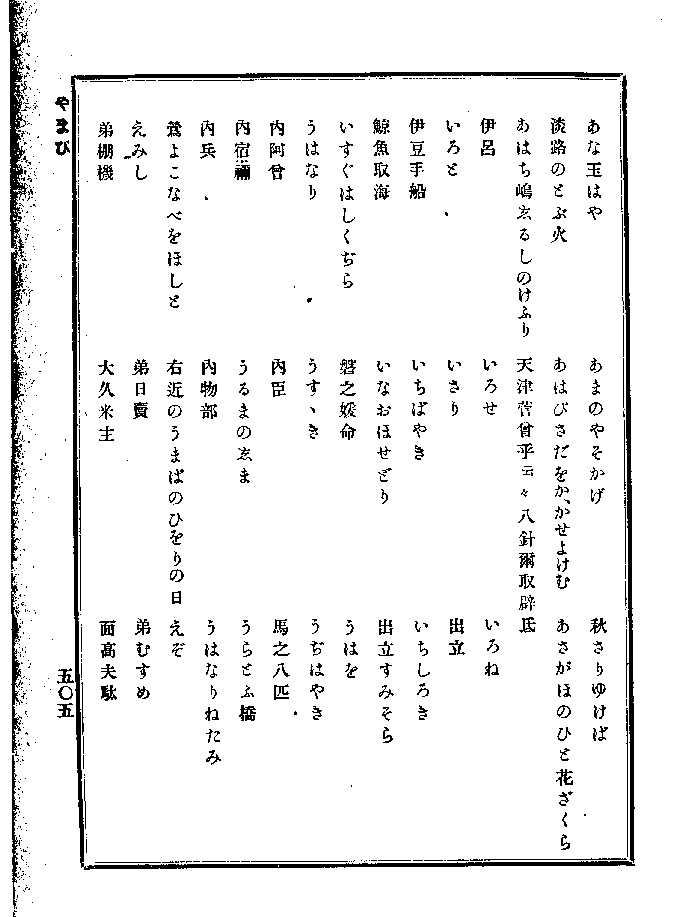 あな玉はや
あまのやそかげ
秋さりゆけば
淡路のとぶ火
あはびさだをか、かせよけむ
あさがほのひと花ざくら
あはち嶋ゑるしのけふり
天津菅曾乎云々八針爾取辟氐
伊呂
いろせ
いろね
いろと
いさり
出立
伊豆手船
いちばやき
いちしろき
鯨魚取海
いなおほせどり
出立すみそら
いすぐはしくぢら
磐之媛命
うはを
うはなり
うすゝき
うぢはやき
內阿曾
內臣
馬之八匹
內宿禰
うるまのゑま
うらとふ橋
內兵
內物部
うはなりねたみ
鶯よこなべをほしと
右近のうまばのひをりの日
えぞ
えみし
弟日賣
弟むすめ
弟棚機
大久米主
面高夫駄
やまび
五〇五